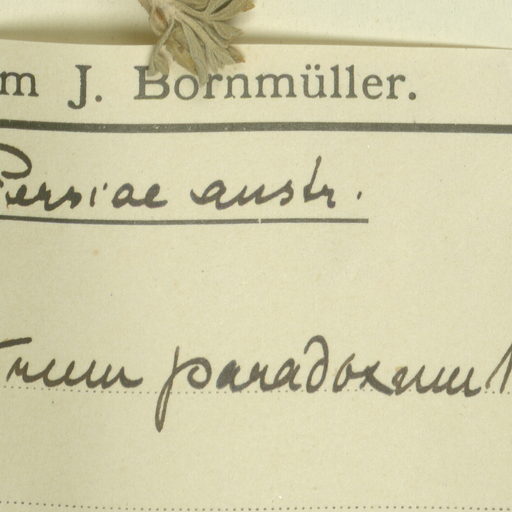 m J. Bornmüller.
Persiae austr.
trum paradoxum